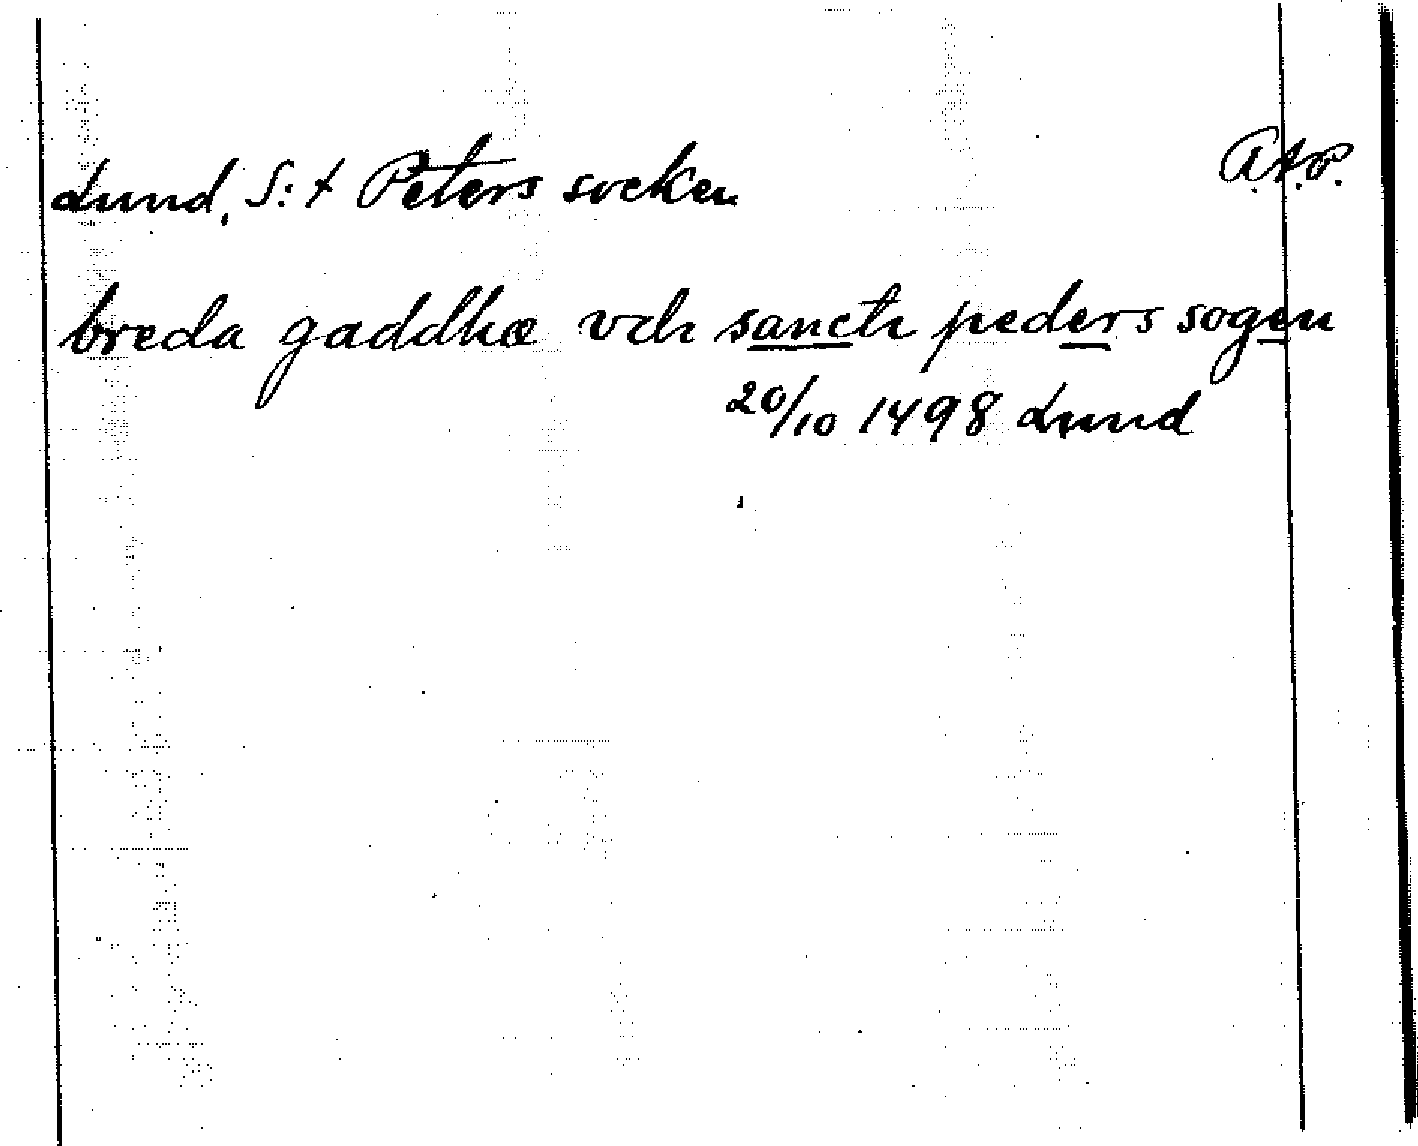 Lund, S:t Peters socken A.A.P.
breda gaddhæ vdi sancti peders sogen
20/10 1498 Lund